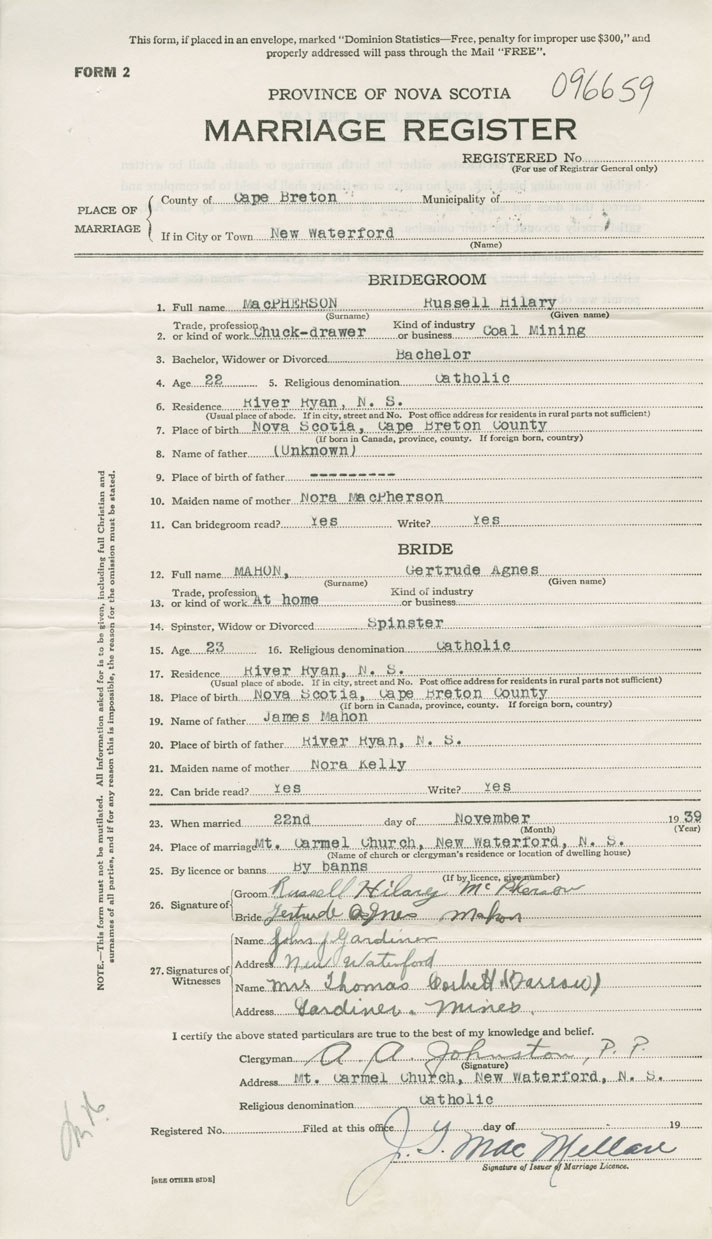 This form, if placed in an envelope, marked “Dominion Statistics—Free, penalty for improper use $300,” and
properly addressed will pass through the Mail “FREE”.
FORM 2
096659
PROVINCE OF NOVA SCOTIA
MARRIAGE REGISTER
REGISTERED No.
(For use of Registrar General only)
PLACE OF MARRIAGE
County of Cape Breton Municipality of
If in City or Town New Waterford
(Name)
BRIDEGROOM
1. Full name MacPHERSON Russell Hilary
(Surname) (Given name)
2. Trade, profession or kind of work Chuck-drawer Kind of industry or business Coal Mining
3. Bachelor, Widower or Divorced Bachelor
4. Age 22 5. Religious denomination Catholic
6. Residence River Ryan, N. S.
(Usual place of abode. If in city, street and No. Post office address for residents in rural parts not sufficient)
7. Place of birth Nova Scotia, Cape Breton County
(If born in Canada, province, county. If foreign born, country)
8. Name of father (Unknown)
9. Place of birth of father ---------
10. Maiden name of mother Nora MacPherson
11. Can bridegroom read? Yes Write? Yes
BRIDE
12. Full name MAHON, Gertrude Agnes
(Surname) (Given name)
13. Trade, profession or kind of work At home Kind of industry or business
14. Spinster, Widow or Divorced Spinster
15. Age 23 16. Religious denomination Catholic
17. Residence River Ryan, N. S.
(Usual place of abode. If in city, street and No. Post office address for residents in rural parts not sufficient)
18. Place of birth Nova Scotia, Cape Breton County
(If born in Canada, province, county. If foreign born, country)
19. Name of father James Mahon
20. Place of birth of father River Ryan, N. S.
21. Maiden name of mother Nora Kelly
22. Can bride read? Yes Write? Yes
23. When married 22nd day of November 1939
(Month) (Year)
24. Place of marriage Mt. Carmel Church, New Waterford, N. S.
(Name of church or clergyman's residence or location of dwelling house)
25. By licence or banns By banns
(If by licence, give number)
26. Signature of
Groom Russell Hilary McPherson
Bride Gertrude Agnes Mahon
27. Signatures of Witnesses
Name John J Gardiner
Address New Waterford
Name Mrs Thomas Corbett (Barrow)
Address Gardiner Mines.
I certify the above stated particulars are true to the best of my knowledge and belief.
Clergyman A A. Johnston, P. P.
(Signature)
Address Mt. Carmel Church, New Waterford, N. S.
Religious denomination Catholic
Registered No. Filed at this office day of 19
J. G. MacMellan
Signature of Issuer of Marriage Licence.
[SEE OTHER SIDE]
NOTE.—This form must not be mutilated. All information asked for is to be given, including full Christian and
surnames of all parties, and if for any reason this is impossible, the reason for the omission must be stated.